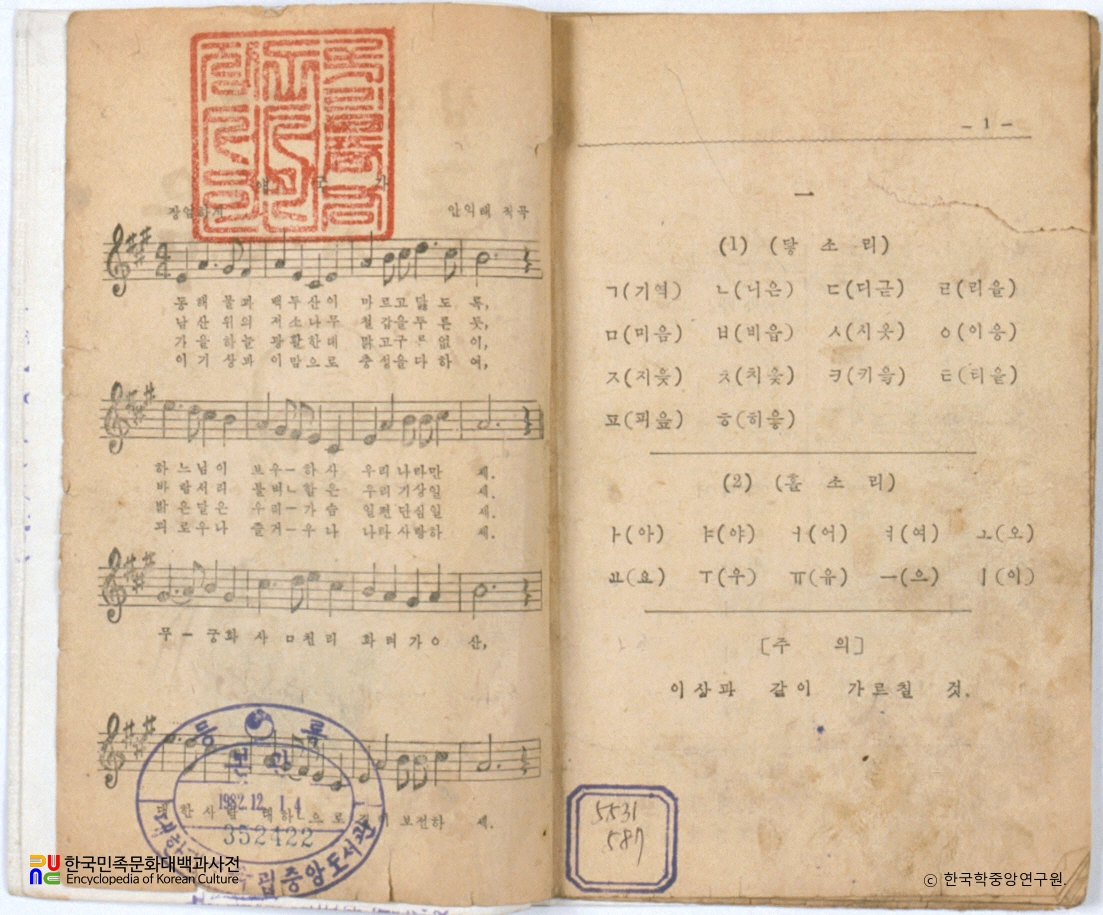 애 국 가
장엄하게
안익태 작곡
4
4
동 해 물과 백두산이 마르고 닳 도 록,
남 산 위의 저소나무 철갑을두 른 듯,
가 을 하늘 공활한데 높고구 없 이,
이 기 상과 이맘으로 충성을다 하 여,
하 느 님 이 보우ー하 사 우리나라만 세.
바 람 서 리 불변ㄴ함 은 우리기상일 세.
밝 은 달 은 우리ー가 슴 일편단심일 세.
괴 로 우 나 즐거ー우 나 나라사랑하 세.
무 ー 궁화 사 ㅁ천리 화 려 가ㅇ 산,
대 한 사람 대하 으로 길이 보전하 세.
등 록
본 관
1982.12. 1.4
352422
립중앙도서관
한국민족문화대백과사전
Encyclopedia of Korean Culture
– 1 –
一
(1) (닿 소 리)
ㄱ(기역) ㄴ(니은) ㄷ(디귿) ㄹ(리을)
ㅁ(미음) ㅂ(비읍) ㅅ(시옷) ㅇ(이응)
ㅈ(지읒) ㅊ(치읓) ㅋ(키읔) ㅌ(티읕)
ㅍ(피읖) ㅎ(히읗)
(2) (홀 소 리)
ㅏ(아) ㅑ(야) ㅓ(어) ㅕ(여) ㅗ(오)
ㅛ(요) ㅜ(우) ㅠ(유) ㅡ(으) ㅣ(이)
[주 의]
이상과 같이 가르칠 것.
5531
587
© 한국학중앙연구원.